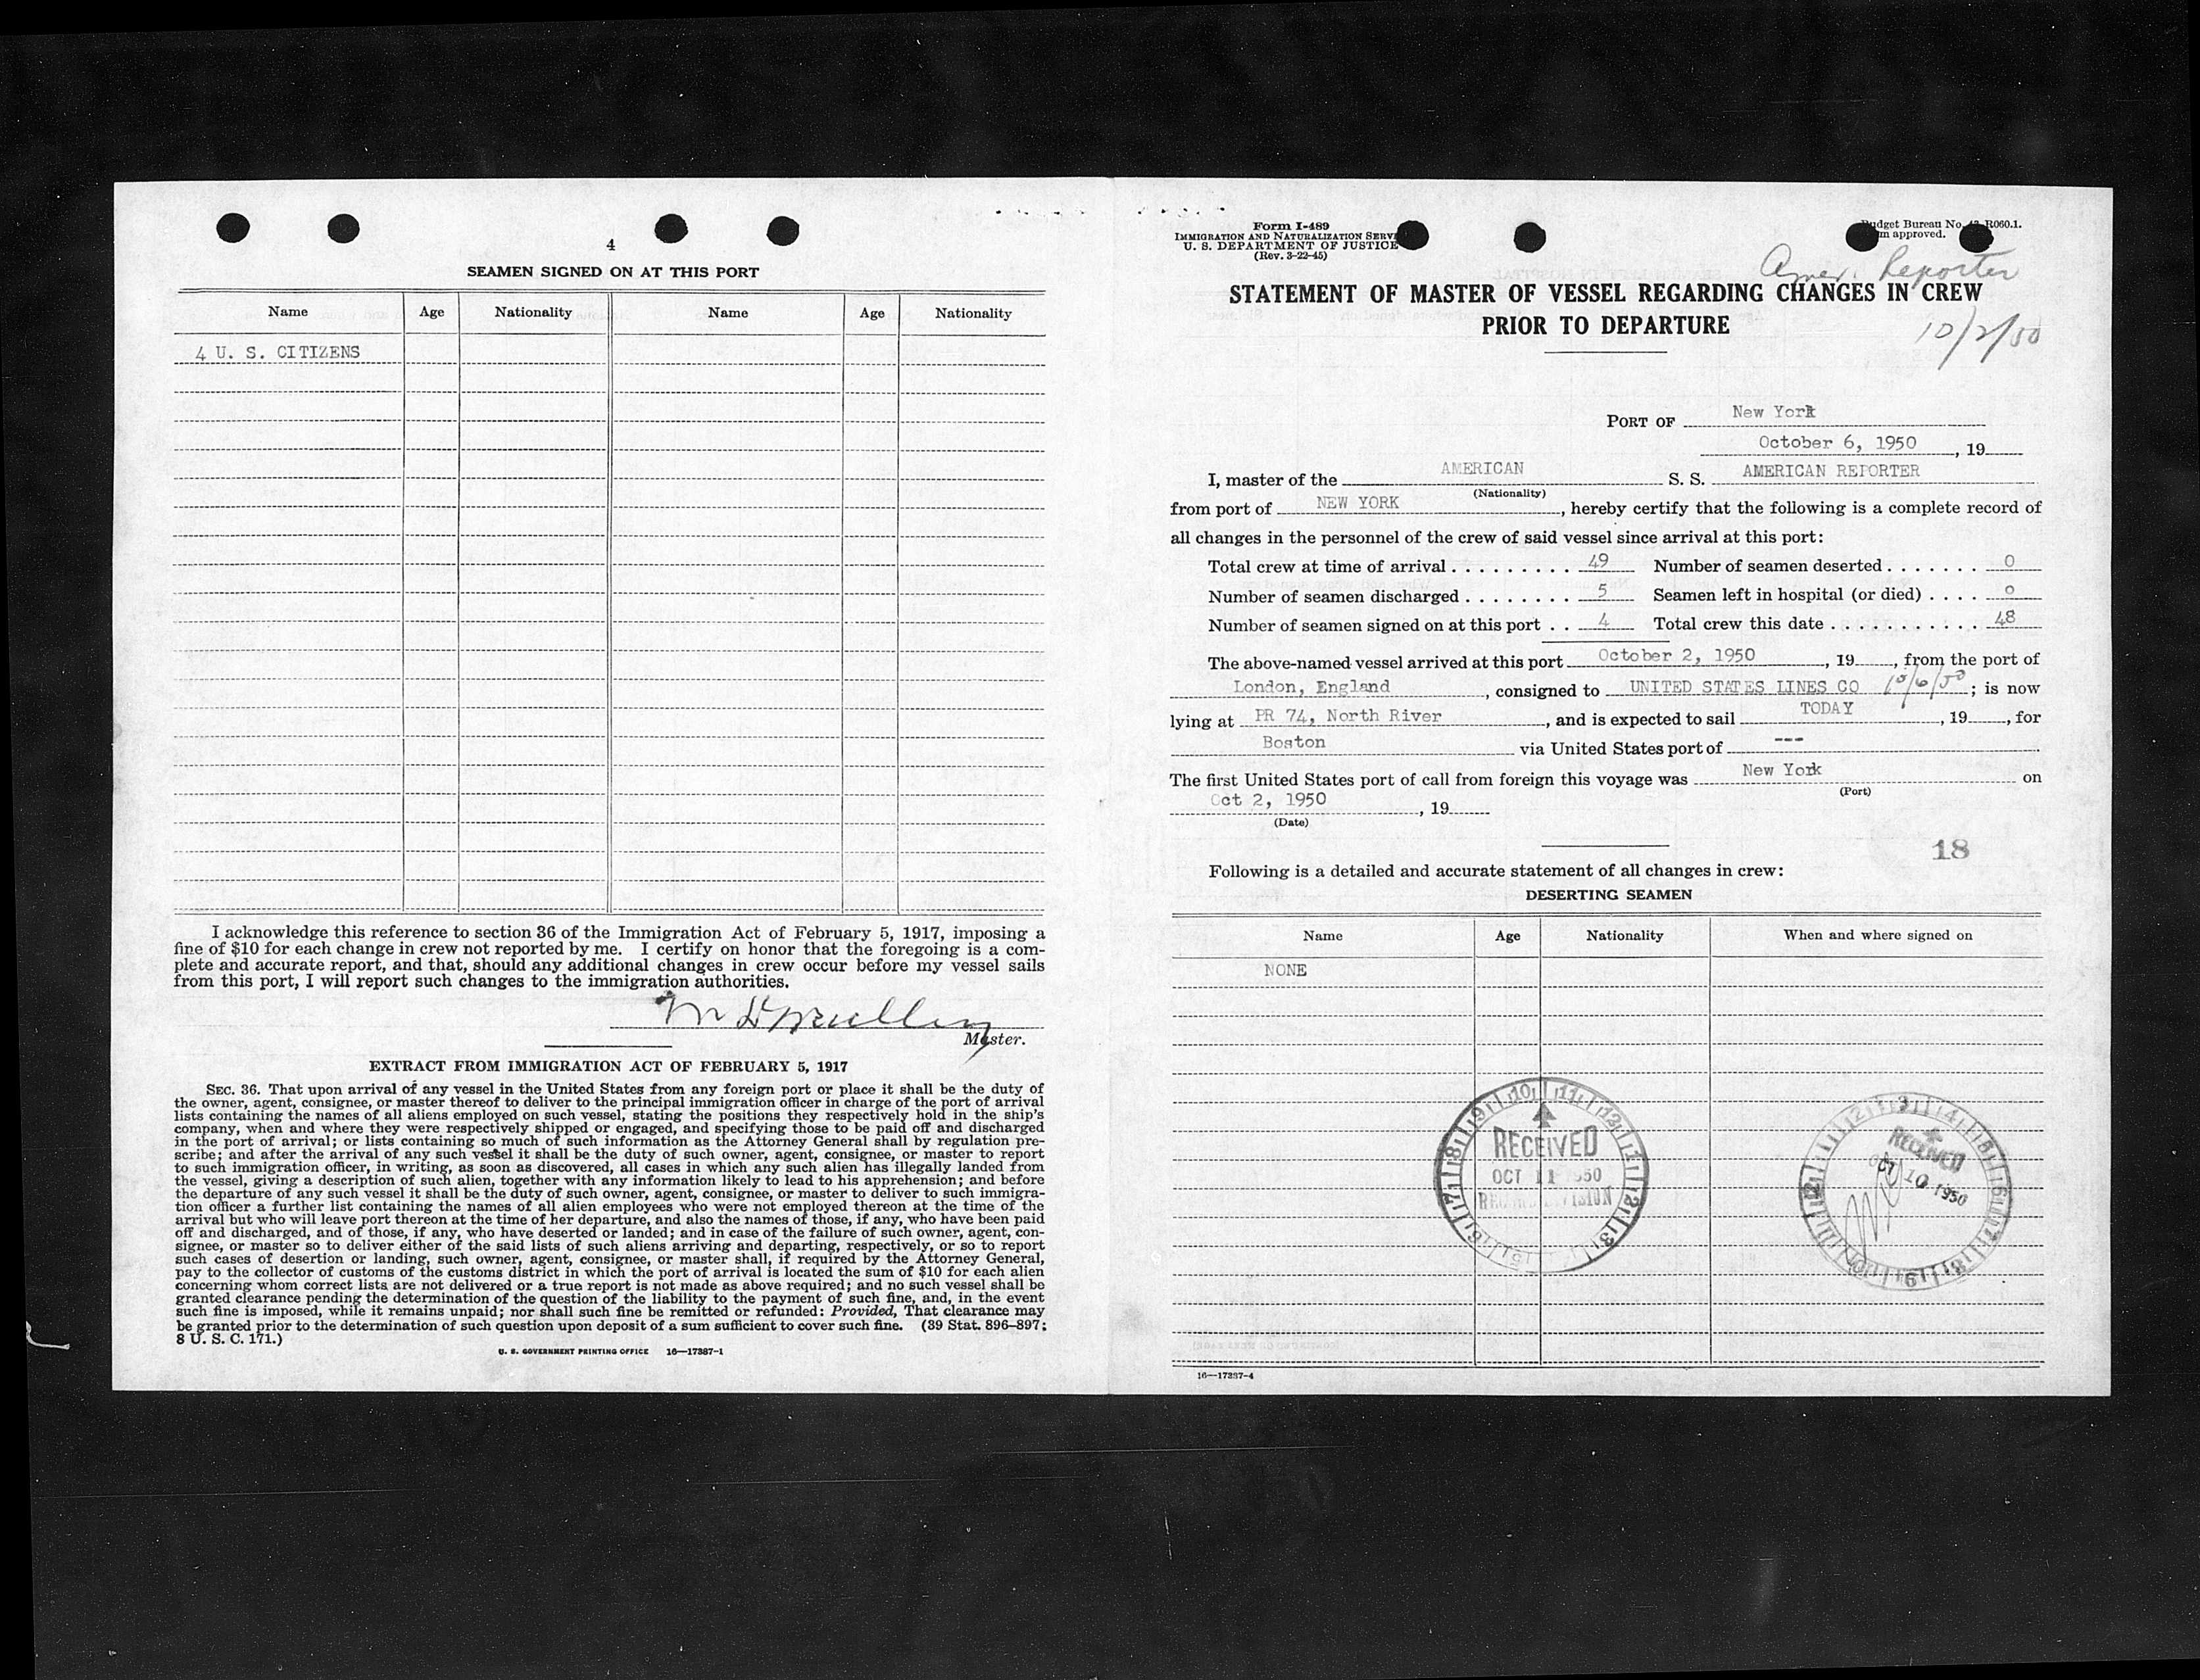 4
SEAMEN SIGNED ON AT THIS PORT
Name Age Nationality Name Age Nationality
4 U. S. CITIZENS
I acknowledge this reference to section 36 of the Immigration Act of February 5, 1917, imposing a
fine of $10 for each change in crew not reported by me. I certify on honor that the foregoing is a com-
plete and accurate report, and that, should any additional changes in crew occur before my vessel sails
from this port, I will report such changes to the immigration authorities.
Master.
EXTRACT FROM IMMIGRATION ACT OF FEBRUARY 5, 1917
SEC. 36. That upon arrival of any vessel in the United States from any foreign port or place it shall be the duty of
the owner, agent, consignee, or master thereof to deliver to the principal immigration officer in charge of the port of arrival
lists containing the names of all aliens employed on such vessel, stating the positions they respectively hold in the ship's
company, when and where they were respectively shipped or engaged, and specifying those to be paid off and discharged
in the port of arrival; or lists containing so much of such information as the Attorney General shall by regulation pre-
scribe; and after the arrival of any such vessel it shall be the duty of such owner, agent, consignee, or master to report
to such immigration officer, in writing, as soon as discovered, all cases in which any such alien has illegally landed from
the vessel, giving a description of such alien, together with any information likely to lead to his apprehension; and before
the departure of any such vessel it shall be the duty of such owner, agent, consignee, or master to deliver to such immigra-
tion officer a further list containing the names of all alien employees who were not employed thereon at the time of the
arrival but who will leave port thereon at the time of her departure, and also the names of those, if any, who have been paid
off and discharged, and of those, if any, who have deserted or landed; and in case of the failure of such owner, agent, con-
signee, or master so to deliver either of the said lists of such aliens arriving and departing, respectively, or so to report
such cases of desertion or landing, such owner, agent, consignee, or master shall, if required by the Attorney General,
pay to the collector of customs of the customs district in which the port of arrival is located the sum of $10 for each alien
concerning whom correct lists are not delivered or a true report is not made as above required; and no such vessel shall be
granted clearance pending the determination of the question of the liability to the payment of such fine, and, in the event
such fine is imposed, while it remains unpaid; nor shall such fine be remitted or refunded: Provided, That clearance may
be granted prior to the determination of such question upon deposit of a sum sufficient to cover such fine. (39 Stat. 896–897;
8 U. S. C. 171.)
U. S. GOVERNMENT PRINTING OFFICE 16—17387-1
Form I-489
IMMIGRATION AND NATURALIZATION SERV
U. S. DEPARTMENT OF JUSTICE
(Rev. 3-22-45)
Budget Bureau No. R060.1.
approved.
Amer. Reporter
STATEMENT OF MASTER OF VESSEL REGARDING CHANGES IN CREW
PRIOR TO DEPARTURE
10/2/50
PORT OF New York
October 6, 1950, 19
I, master of the AMERICAN S. S. AMERICAN REPORTER
(Nationality)
from port of NEW YORK, hereby certify that the following is a complete record of
all changes in the personnel of the crew of said vessel since arrival at this port:
Total crew at time of arrival . . . . . . . . . 49 Number of seamen deserted . . . . . . . 0
Number of seamen discharged . . . . . . . . 5 Seamen left in hospital (or died) . . . . 0
Number of seamen signed on at this port . . 4 Total crew this date . . . . . . . . . . . 48
The above-named vessel arrived at this port October 2, 1950, 19, from the port of
London, England, consigned to UNITED STATES LINES CO 10/6/50; is now
lying at PR 74, North River, and is expected to sail TODAY, 19, for
Boston via United States port of ---
The first United States port of call from foreign this voyage was New York on
(Port)
Oct 2, 1950, 19
(Date)
18
Following is a detailed and accurate statement of all changes in crew:
DESERTING SEAMEN
Name Age Nationality When and where signed on
NONE
RECEIVED
OCT 11 1950
RECEIVED
OCT 10 1950
16—17387-4